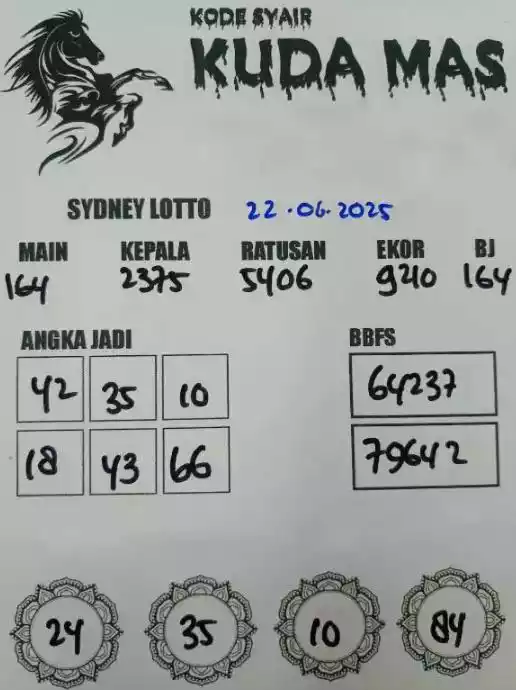 KODE SYAIR
KUDA MAS
SYDNEY LOTTO 22.06.2025
MAIN KEPALA RATUSAN EKOR BJ
164 2375 5406 9240 164
ANGKA JADI BBFS
42 35 10 64237
18 43 66 79642
24 35 10 84